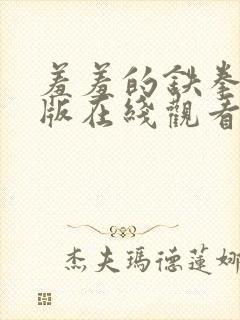 羞羞的鉄拳
版在綫觀看
杰夫瑪德蓮娜